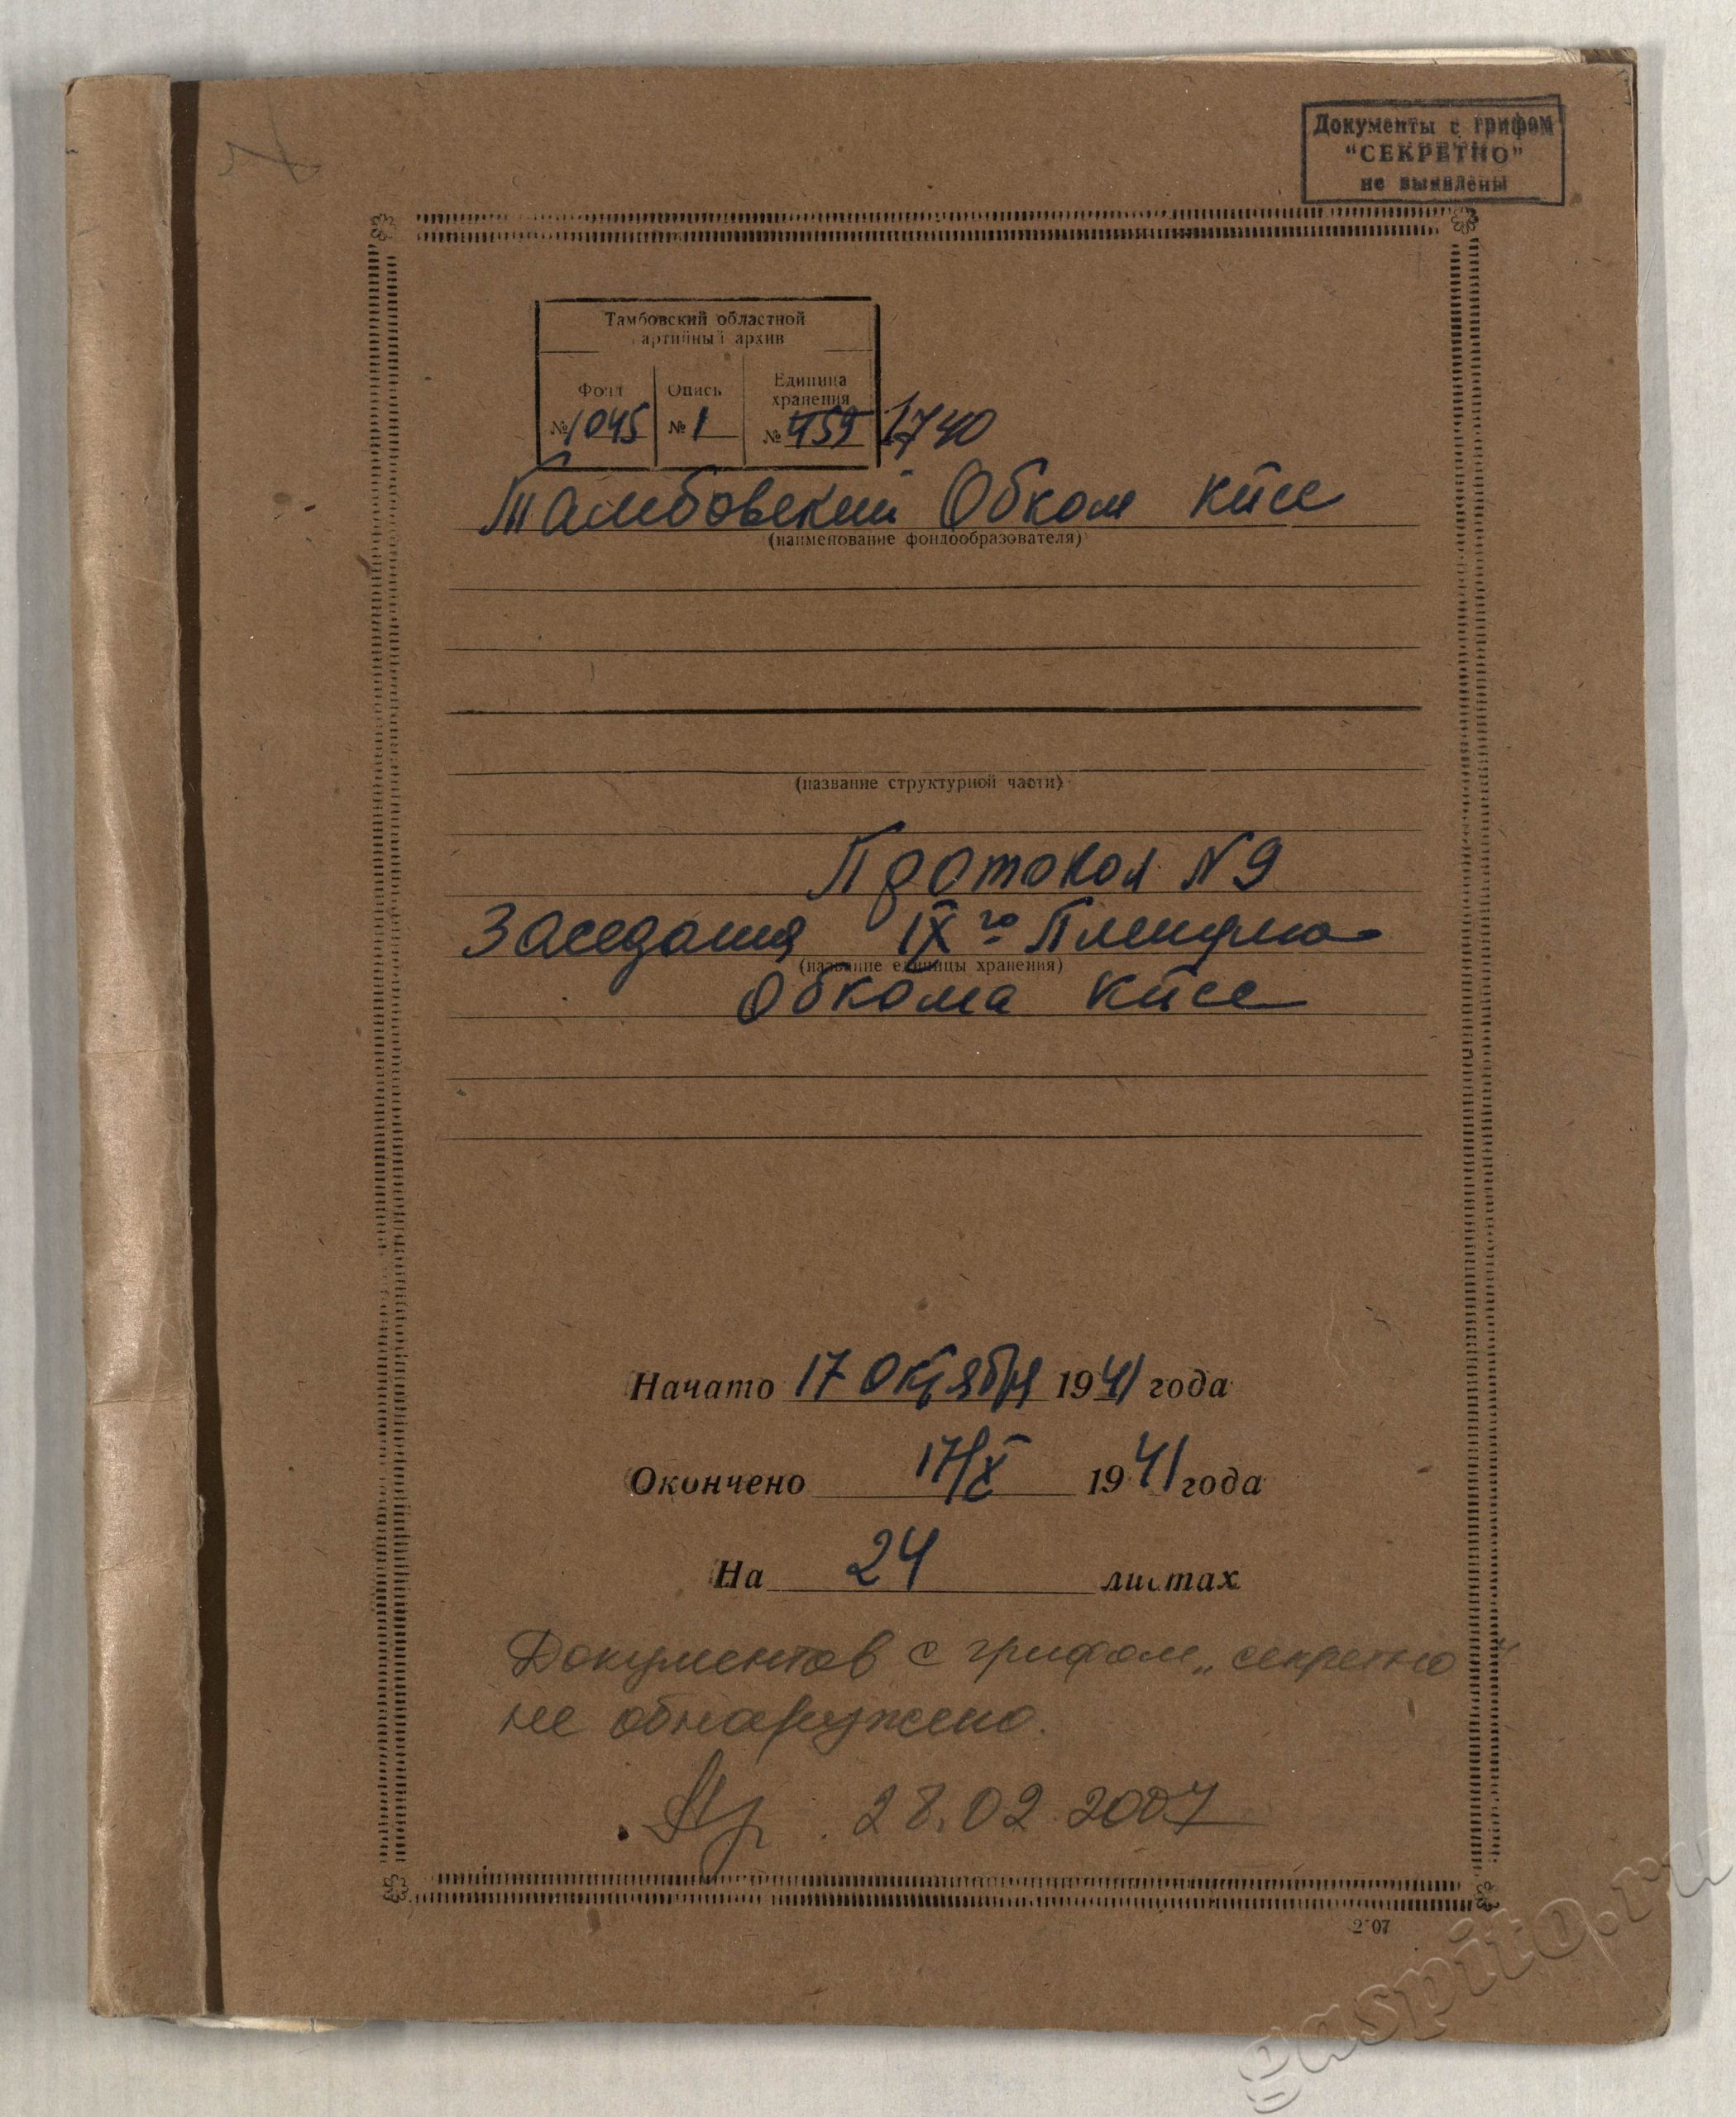 Документы с грифом
"СЕКРЕТНО"
не выявлены
Тамбовский областной
артийный архив
Фонд Опись Единица
хранения
№ 1045 № 1 № 459 1740
Тамбовский Обком КПСС
(наименование фондообразователя)
(название структурной части)
Протокол N 9
Заседания IX го Пленума
(название единицы хранения)
Обкома КПСС
Начато 17 октября 1941 года
Окончено 17/X 1941 года
На 24 листах
Документов с грифом „секретно"
не обнаружено.
28.02.2007
2 07
gaspito.ru